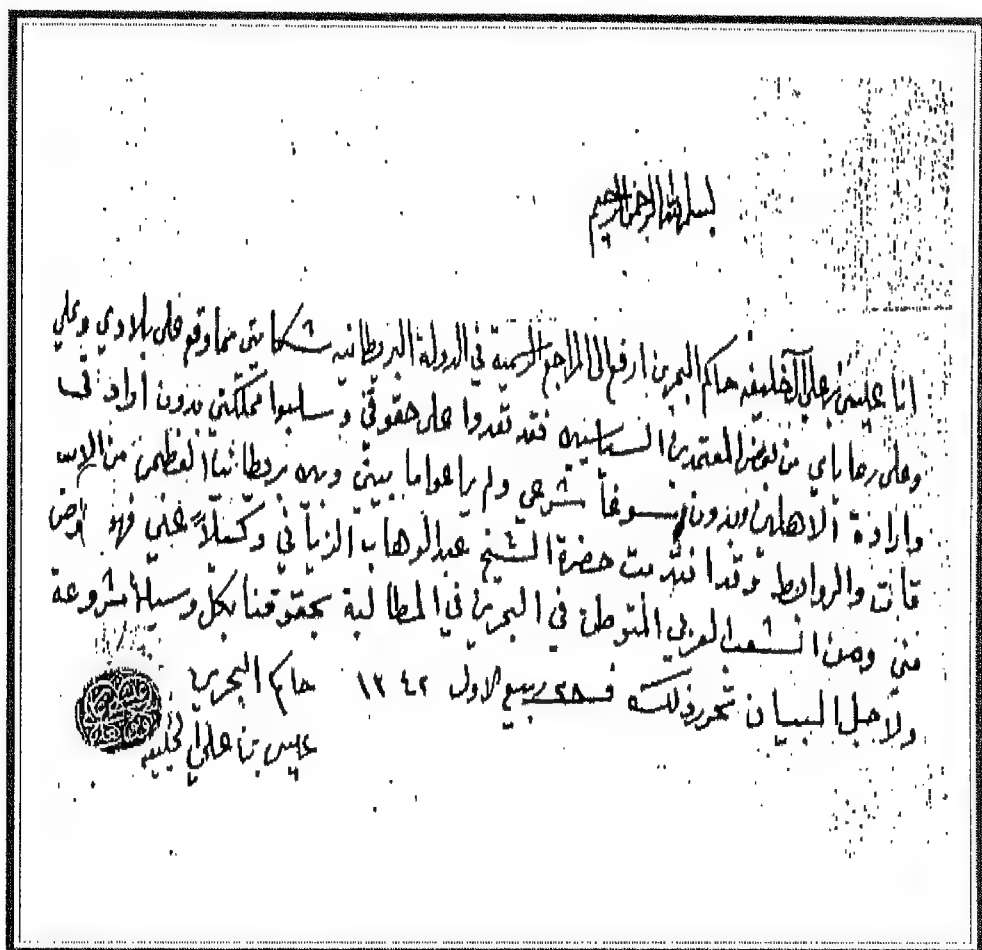 بسم الله الرحمن الرحيم
انا عيسى بن علي آل خليفه حاكم البحرين ارفع الى المراجع الرسمية في الدولة البريطانيه شكايتي مما وقع على بلادي وعلي
وعلى رعاياي من بعض المعتمدين السياسيين فقد تعدوا على حقوقي وسلبوا مملكتي بدون ارادتي
وارادة الأهلين وبدون مسوغاً شرعي ولم يراعوا ما بيني وبين بريطانيا العظمى من
والروابط وقد انتدبت حضرة الشيخ عبدالوهاب الزياني وكيلاً عني فهو
مني ومن الشعب العربي المتوطن في البحرين في المطالبة بحقوقنا بكل وسيلة مشروعة
ولاجل البيان تحرر ذلك في ربيع الاول ١٣٤٢ حاكم البحرين
عيسى بن علي آل خليفه